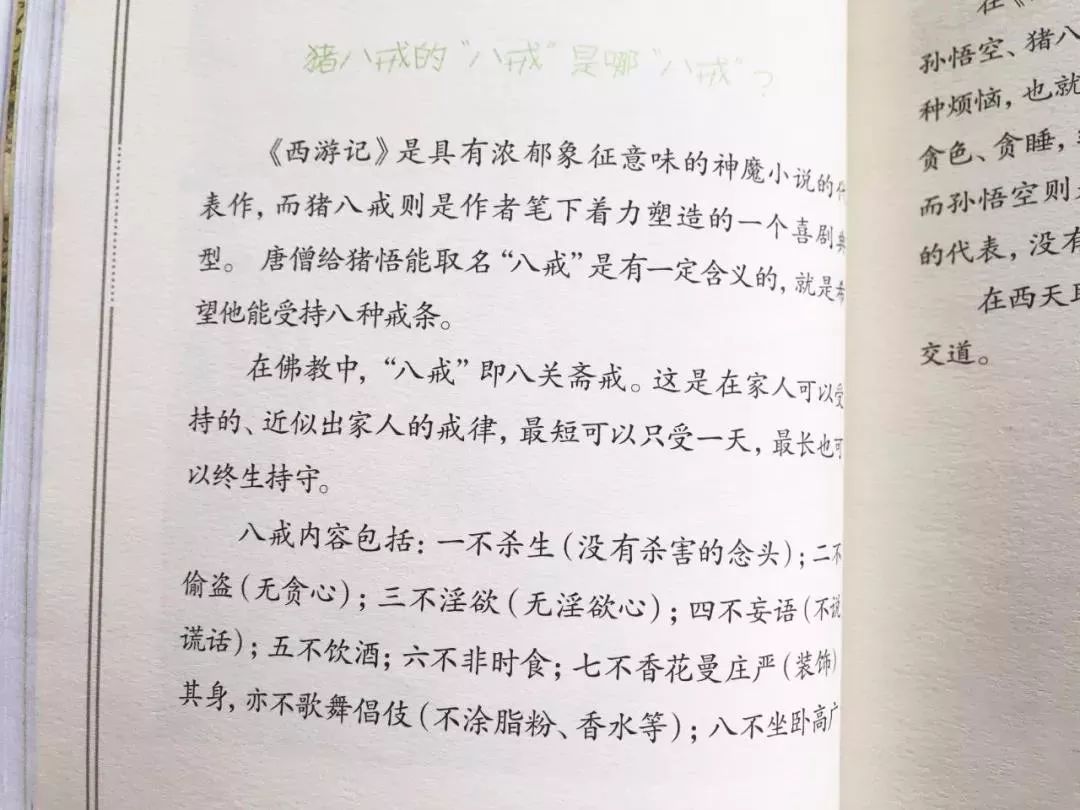 猪八戒的“八戒”是哪“八戒”?
《西游记》是具有浓郁象征意味的神魔小说的代
表作，而猪八戒则是作者笔下着力塑造的一个喜剧典
型。唐僧给猪悟能取名“八戒”是有一定含义的，就是希
望他能受持八种戒条。
在佛教中，“八戒”即八关斋戒。这是在家人可以受
持的、近似出家人的戒律，最短可以只受一天，最长也可
以终生持守。
八戒内容包括：一不杀生(没有杀害的念头)；二不
偷盗(无贪心)；三不淫欲(无淫欲心)；四不妄语(不说
谎话)；五不饮酒；六不非时食；七不香花曼庄严(装饰)
其身，亦不歌舞倡伎(不涂脂粉、香水等)；八不坐卧高广
在《
孙悟空、猪八
种烦恼，也就
贪色、贪睡，
而孙悟空则
的代表，没有
在西天
交道。